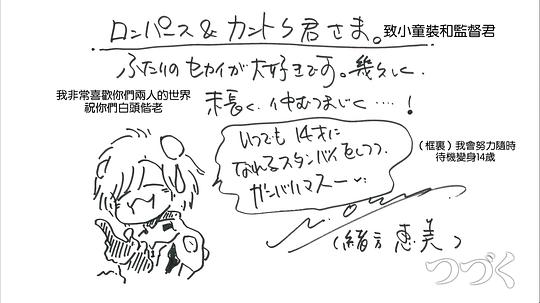 ロンパース&カントク君さま。
致小童裝和監督君
ふたりのセカイが大好きです。幾久しく、
末長く、仲むつまじく…!
我非常喜歡你們兩人的世界
祝你們白頭偕老
いつでも14才に
なれるスタンバイをしつつ、
ガンバルマスー
(框裏)我會努力隨時
待機變身14歲
(緒方恵美)
つづく